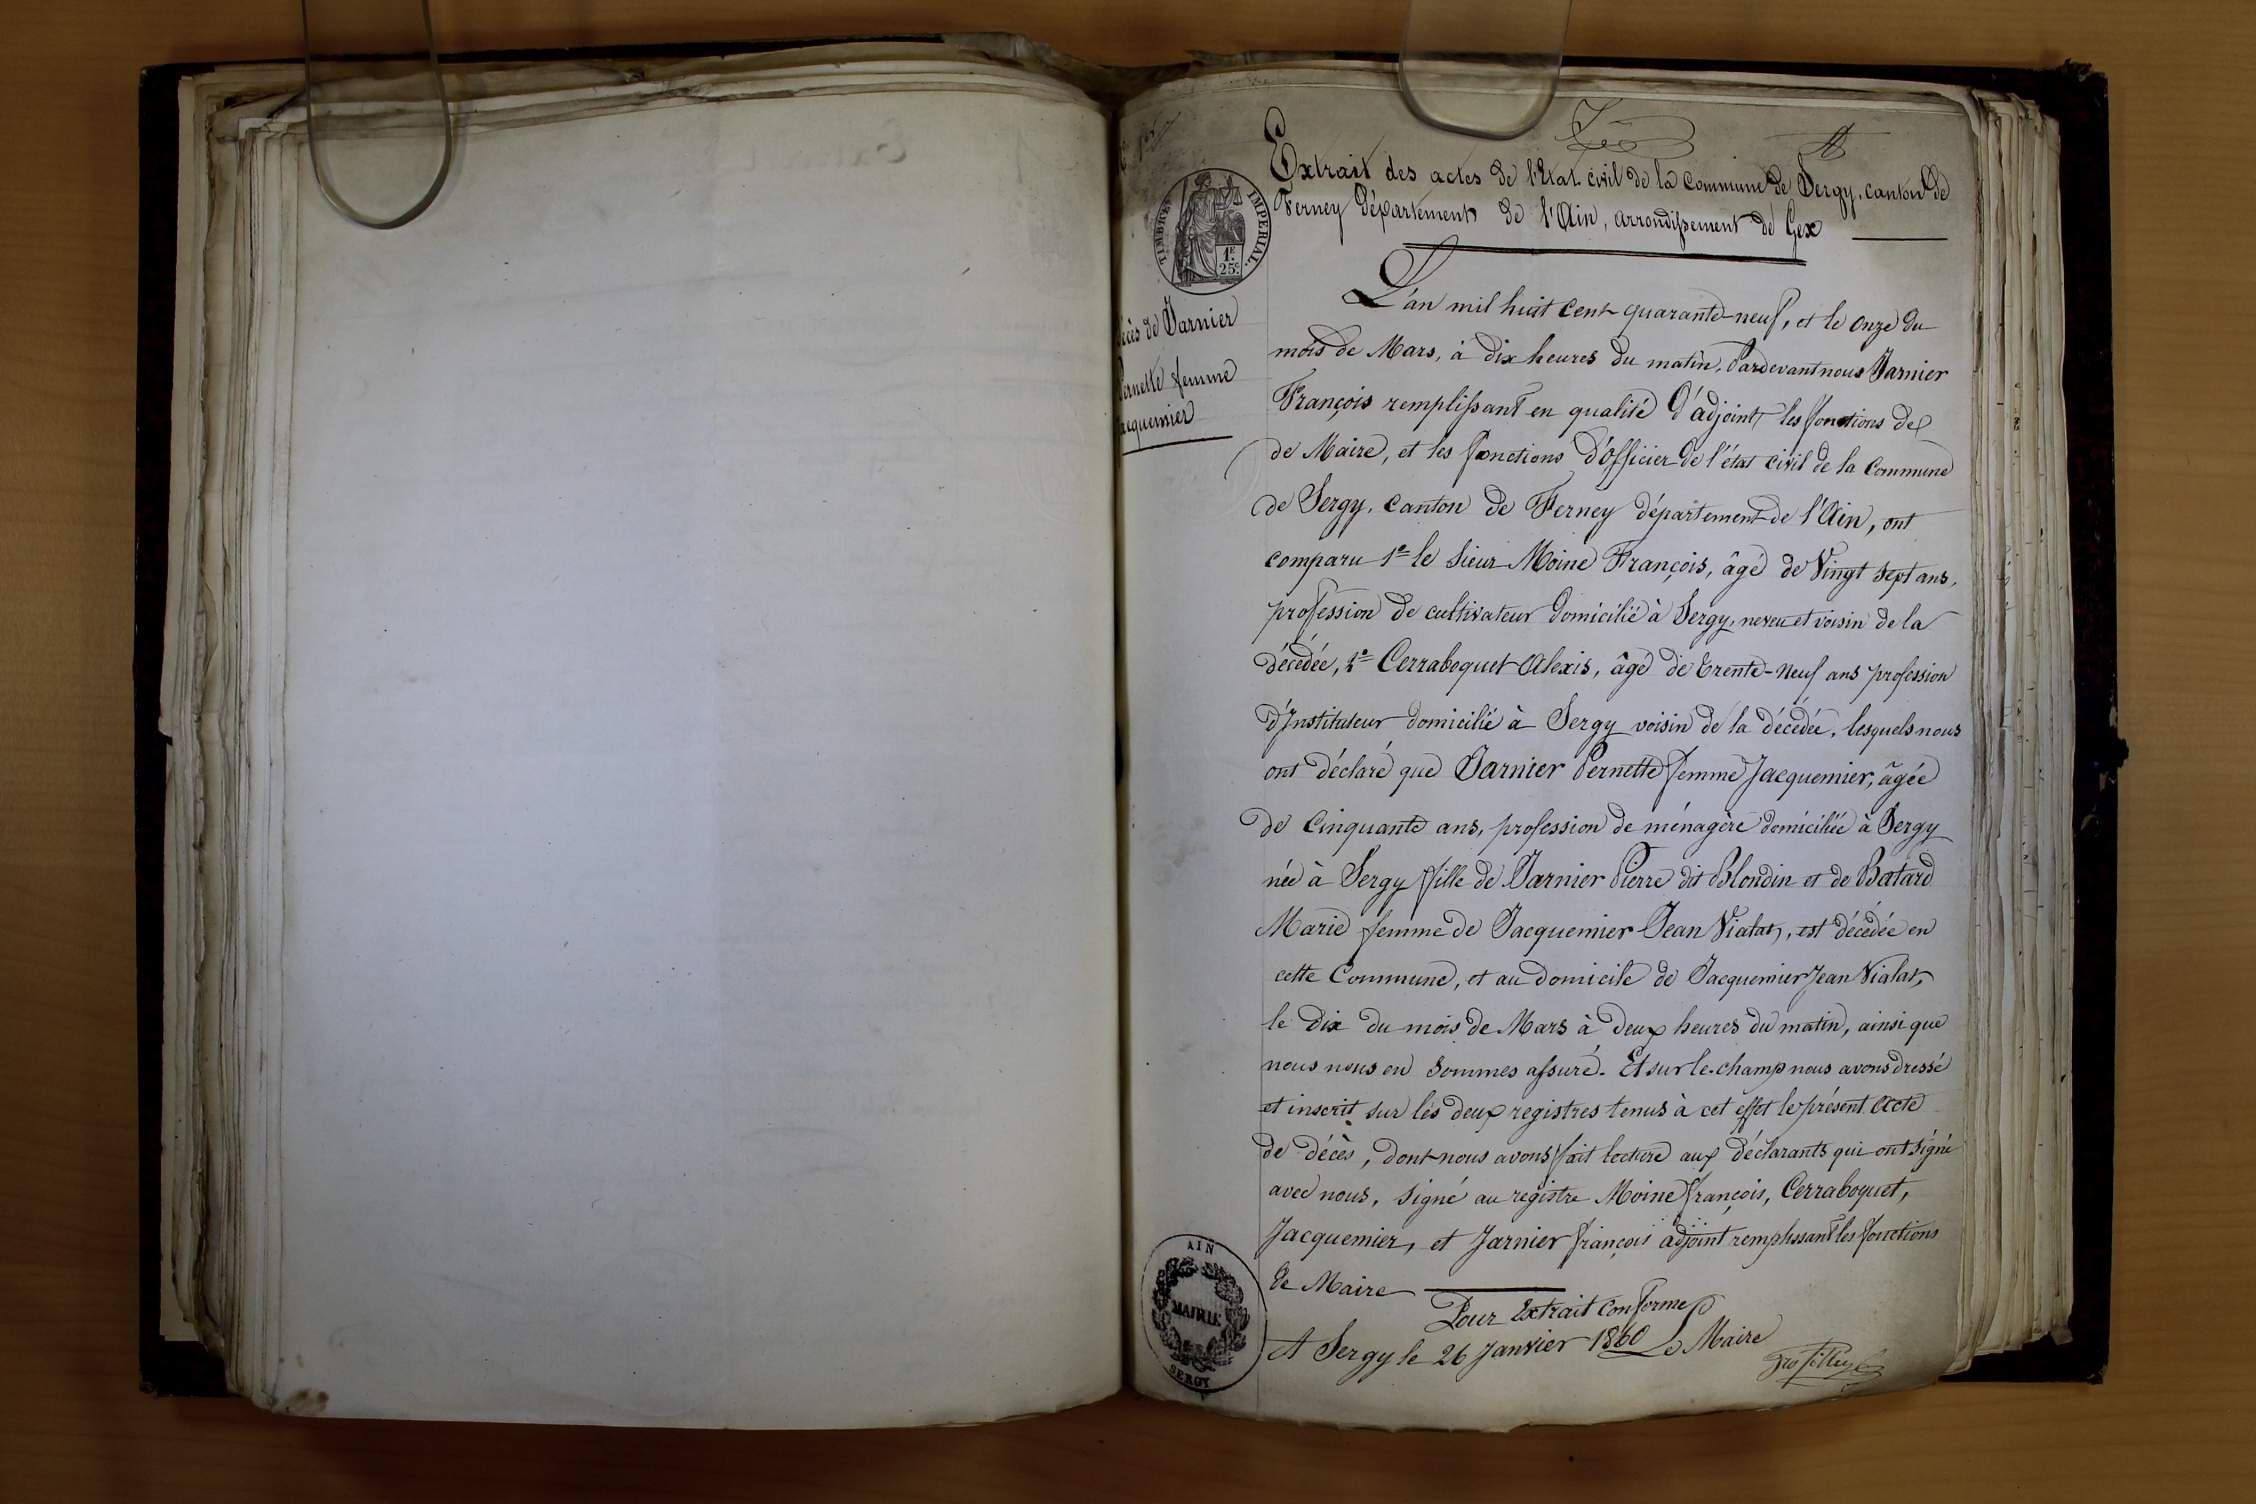 Extrait des actes de l'Etat civil de la Commune de Sergy, canton de
Ferney département de l'Ain, arrondissement de Gex
TIMBRE IMPERIAL
1F.
25c.
décès de Jarnier
Pernette femme
Jacquemier
L'an mil huit cent quarante-neuf, et le onze du
mois de Mars, à dix heures du matin, Pardevant nous Jarnier
François remplissant en qualité d'adjoint les fonctions de
de Maire, et les fonctions d'Officier de l'état civil de la Commune
de Sergy, Canton de Ferney département de l'Ain, ont
comparu 1º le Sieur Moine François, âgé de Vingt sept ans,
profession de cultivateur domicilié à Sergy, neveu et voisin de la
décédée, 2º Cerraboquet Alexis, âgé de trente-neuf ans profession
d'Instituteur domicilié à Sergy voisin de la décédée, lesquels nous
ont déclaré que Jarnier Pernette femme Jacquemier, âgée
de Cinquante ans, profession de ménagère domiciliée à Sergy
née à Sergy fille de Jarnier Pierre dit Blondin et de Batard
Marie femme de Jacquemier Jean Vialat, est décédée en
cette Commune, et au domicile de Jacquemier Jean Vialat,
le dix du mois de Mars à deux heures du matin, ainsi que
nous nous en sommes assuré. Et sur le-champ nous avons dressé
et inscrit sur les deux registres tenus à cet effet le présent acte
de décès, dont nous avons fait lecture aux déclarants qui ont signé
avec nous, signé au registre Moine françois, Cerraboquet,
Jacquemier, et Jarnier françois adjoint remplissant les fonctions
de Maire
Pour Extrait Conforme
A Sergy le 26 Janvier 1860 Le Maire
AIN
MAIRIE
SERGY